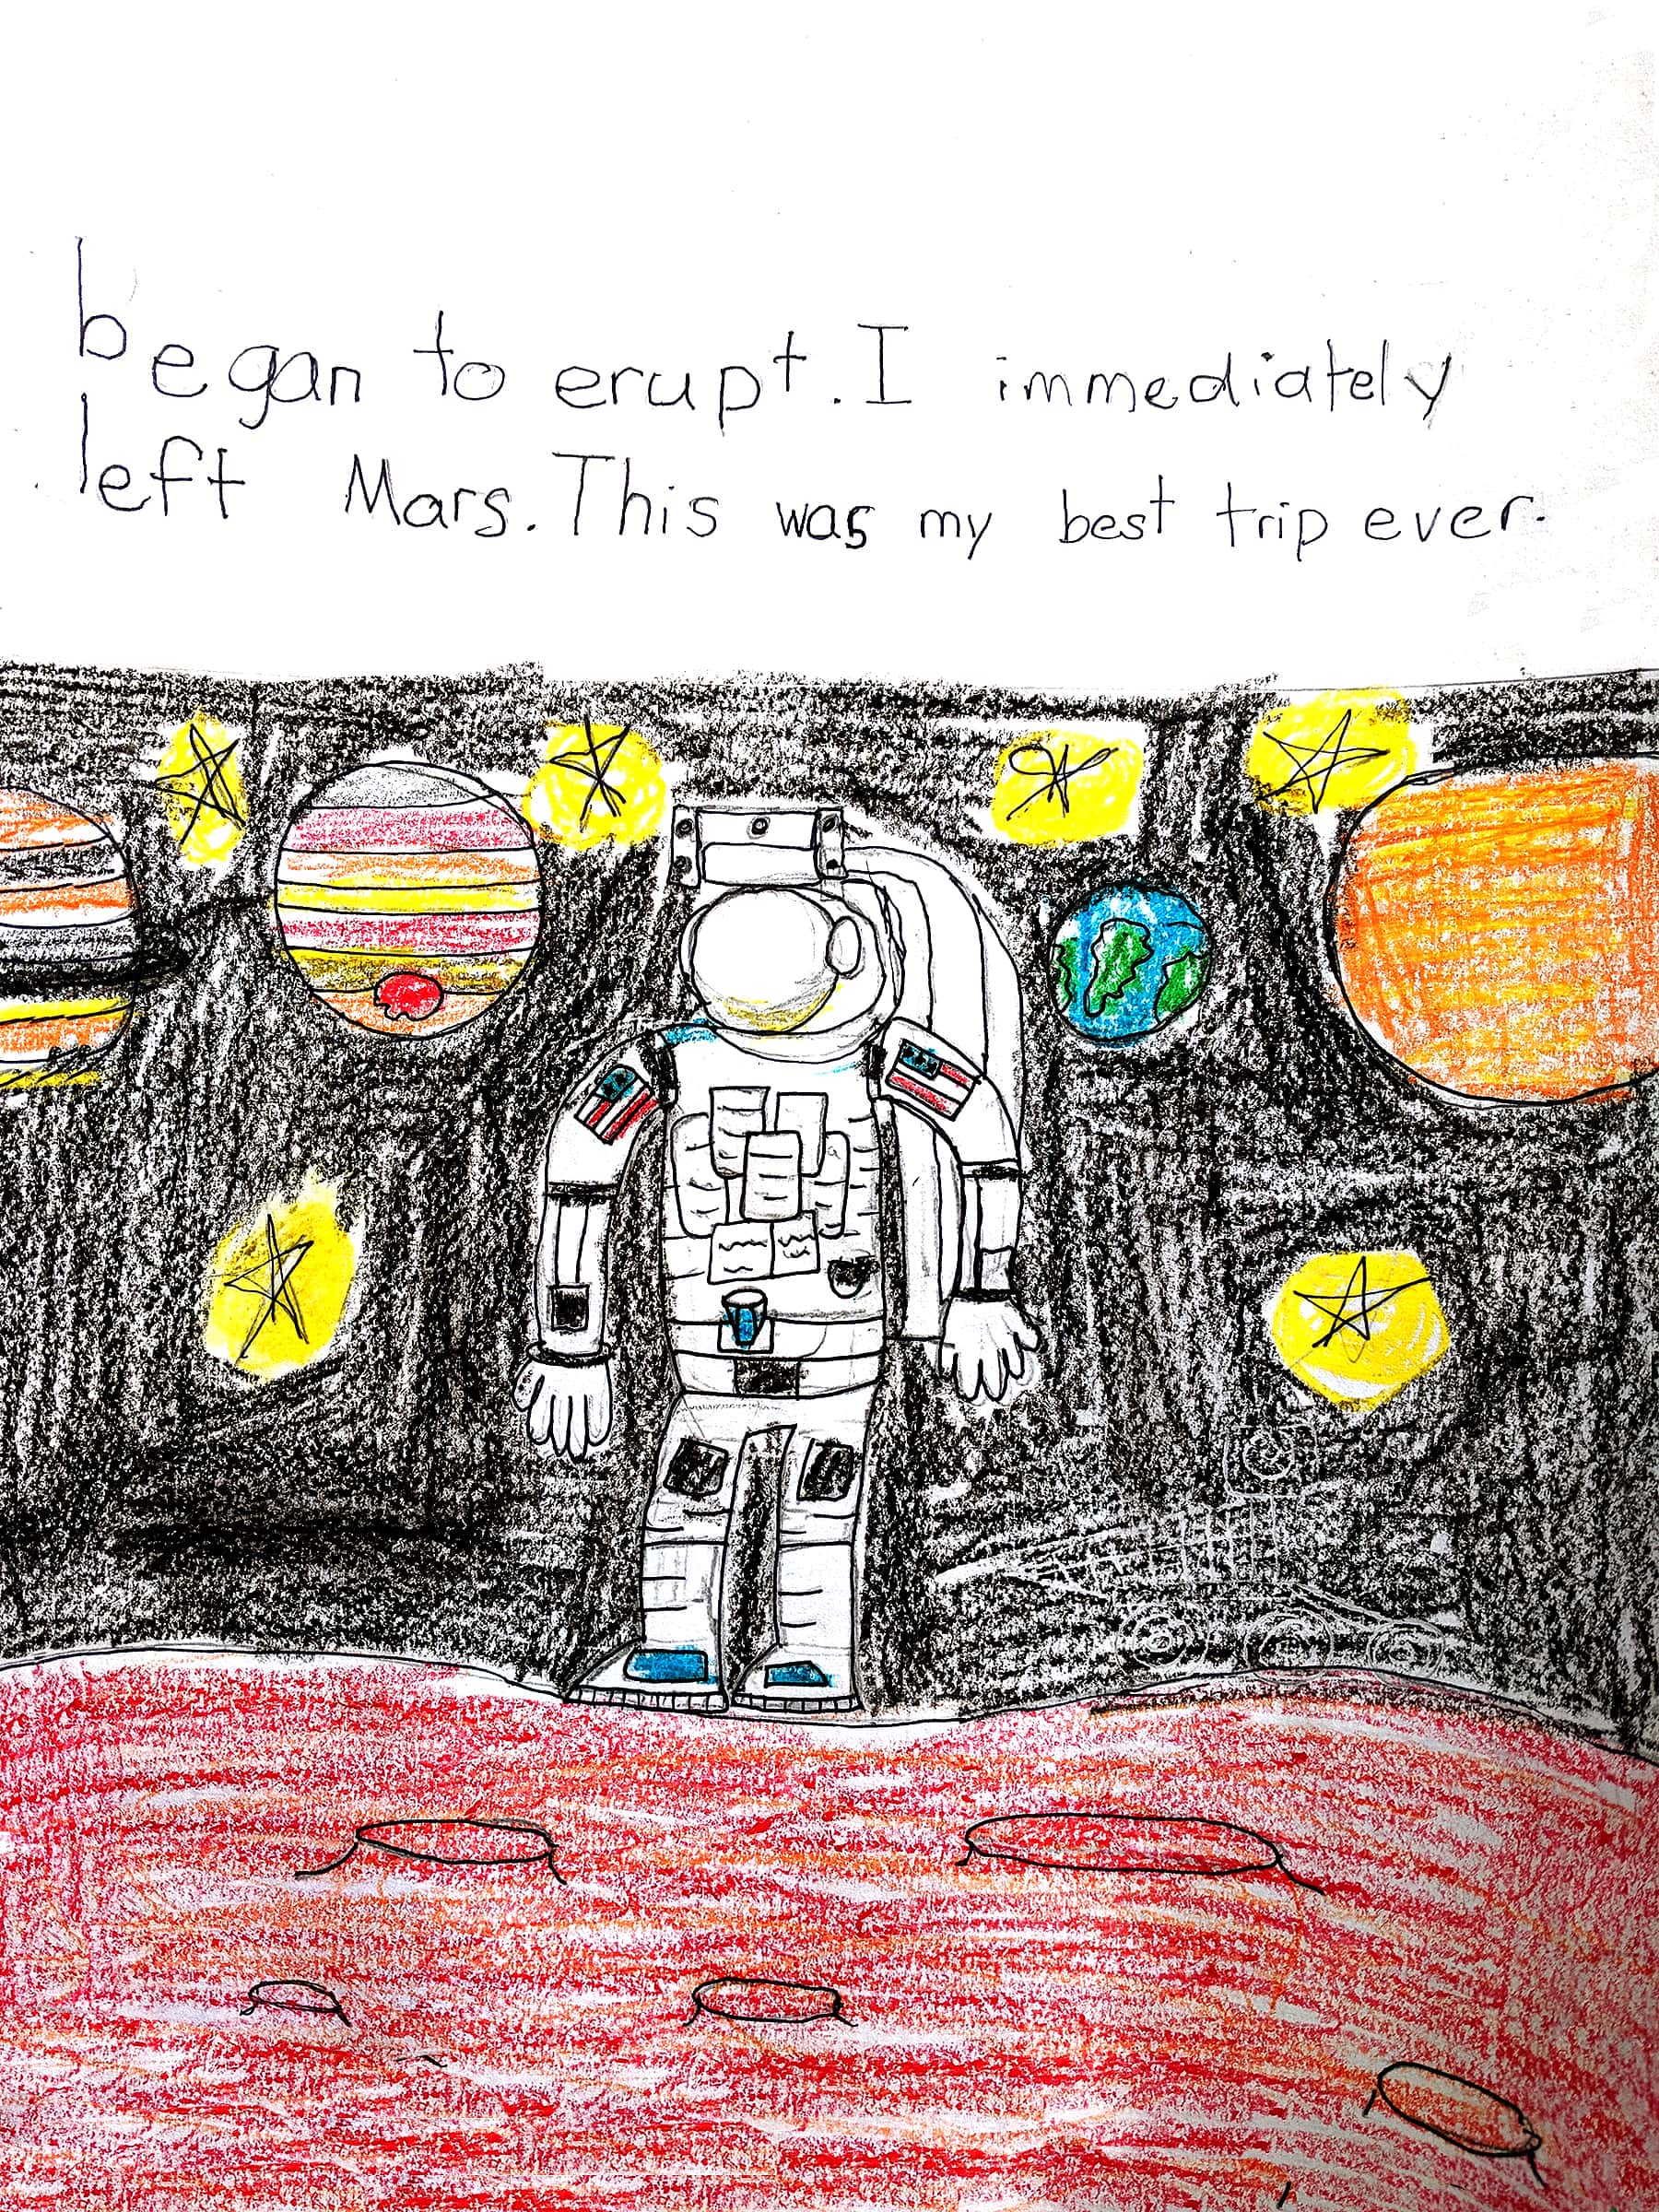 began to erupt. I immediately
left Mars. This was my best trip ever.